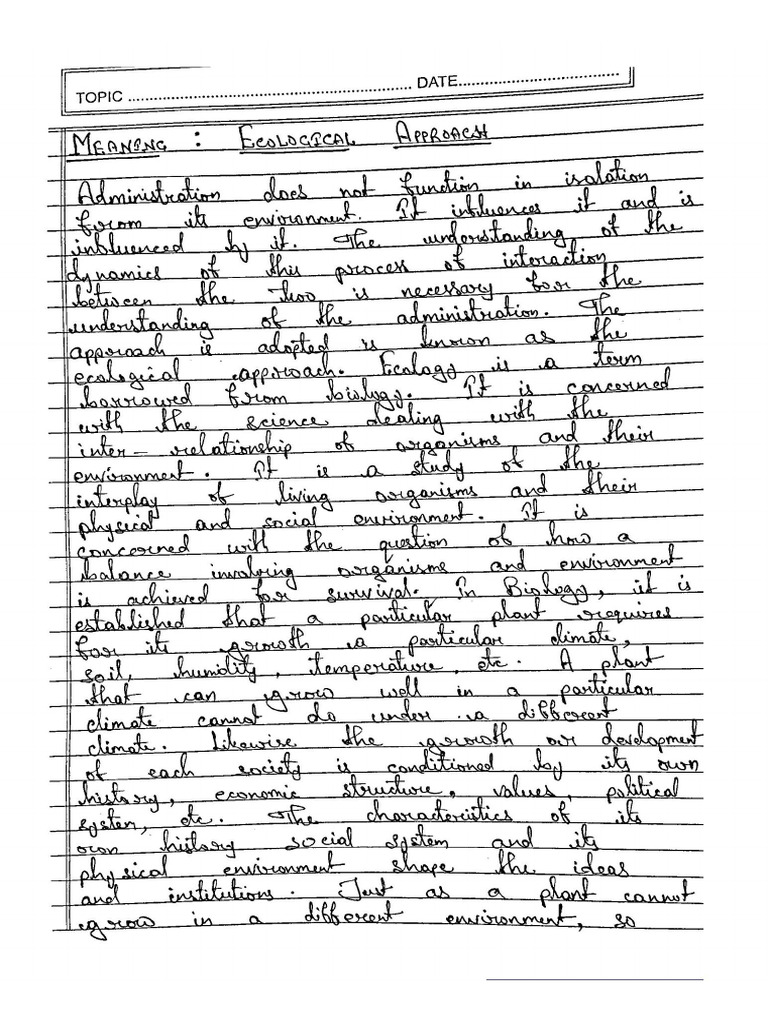 TOPIC ........................................................ DATE....................................
MEANING : ECOLOGICAL APPROACH
Administration does not function in isolation
from its environment. It influences it and is
influenced by it. The understanding of the
dynamics of this process of interaction
between the two is necessary for the
understanding of the administration. The
approach is adopted is known as the
ecological approach. Ecology is a term
borrowed from biology. It is concerned
with the science dealing with the
inter - relationship of organisms and their
environment. It is a study of the
interplay of living organisms and their
physical and social environment. It is
concerned with the question of how a
balance involving organisms and environment
is achieved for survival. In Biology, it is
established that a particular plant requires
for its growth a particular climate,
soil, humidity, temperature, etc. A plant
that can grow well in a particular
climate cannot do under a different
climate. Likewise the growth or development
of each society is conditioned by its own
history, economic structure, values, political
system, etc. The characteristics of its
own history social system and its
physical environment shape the ideas
and institutions. Just as a plant cannot
grow in a different environment, so